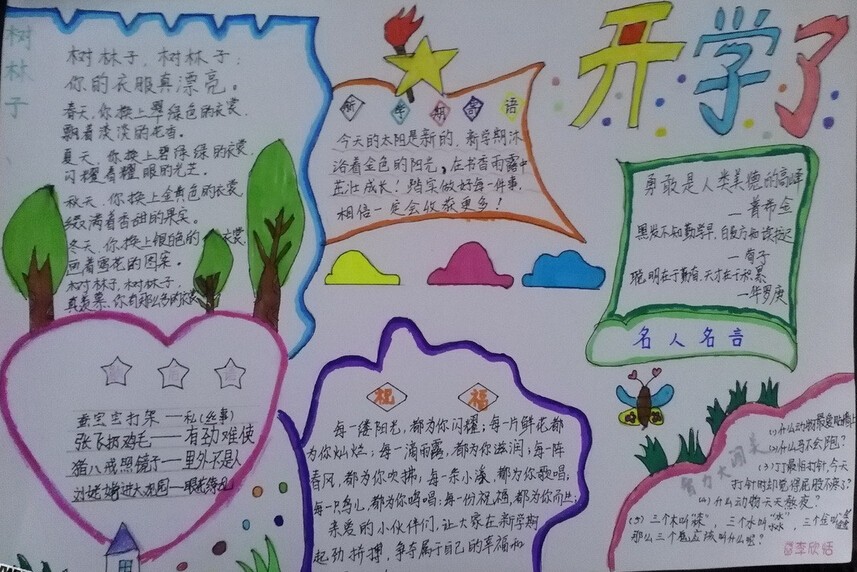 开学了
树林子
树林子,树林子:
你的衣服真漂亮。
春天,你换上翠绿色的衣裳
飘着淡淡的花香。
夏天,你换上碧绿绿的衣裳
闪耀着耀眼的光芒。
秋天,你换上金黄色的衣裳
缀满着香甜的果实。
冬天,你换上银色的衣裳
画着雪花的图案。
树林子,树林子,
真羡慕,你有那么多的衣裳
新学期寄语
今天的太阳是新的,新学期沐
浴着金色的阳光,在书香雨露中
茁壮成长!踏实做好每一件事,
相信一定会收获更多!
勇敢是人类美德的高峰
—普希金
黑发不知勤学早,白首方
—荀子
聪明在于勤奋,天才在于积累
—华罗庚
名人名言
语
蚕宝宝打架——私(丝事)
张飞抓鸡毛——有劲难使
猪八戒照镜子——里外不是人
刘姥姥进大观园——眼花缭乱
祝福
每一缕阳光,都为你闪耀;每一片鲜花都
为你灿烂;每一滴雨露,都为你滋润;每一阵
春风,都为你吹拂,每一条小溪,都为你歌唱,
每一只鸟儿,都为你鸣唱;每一份祝福,都为你而
亲爱的小伙伴们,让大家在新学期
起劲拼搏,争夺属于自己的幸福和
智力大闯关
(1)什么动物最爱贴
(2)什么马不会跑?
(3)丁最怕打针,今天
打针时却觉得屁股不疼了?
(4)什么动物天天熬夜?
(5)三个木叫"森",三个水叫"淼",三个
那么三个鬼应该叫什么呢?
李欣恬